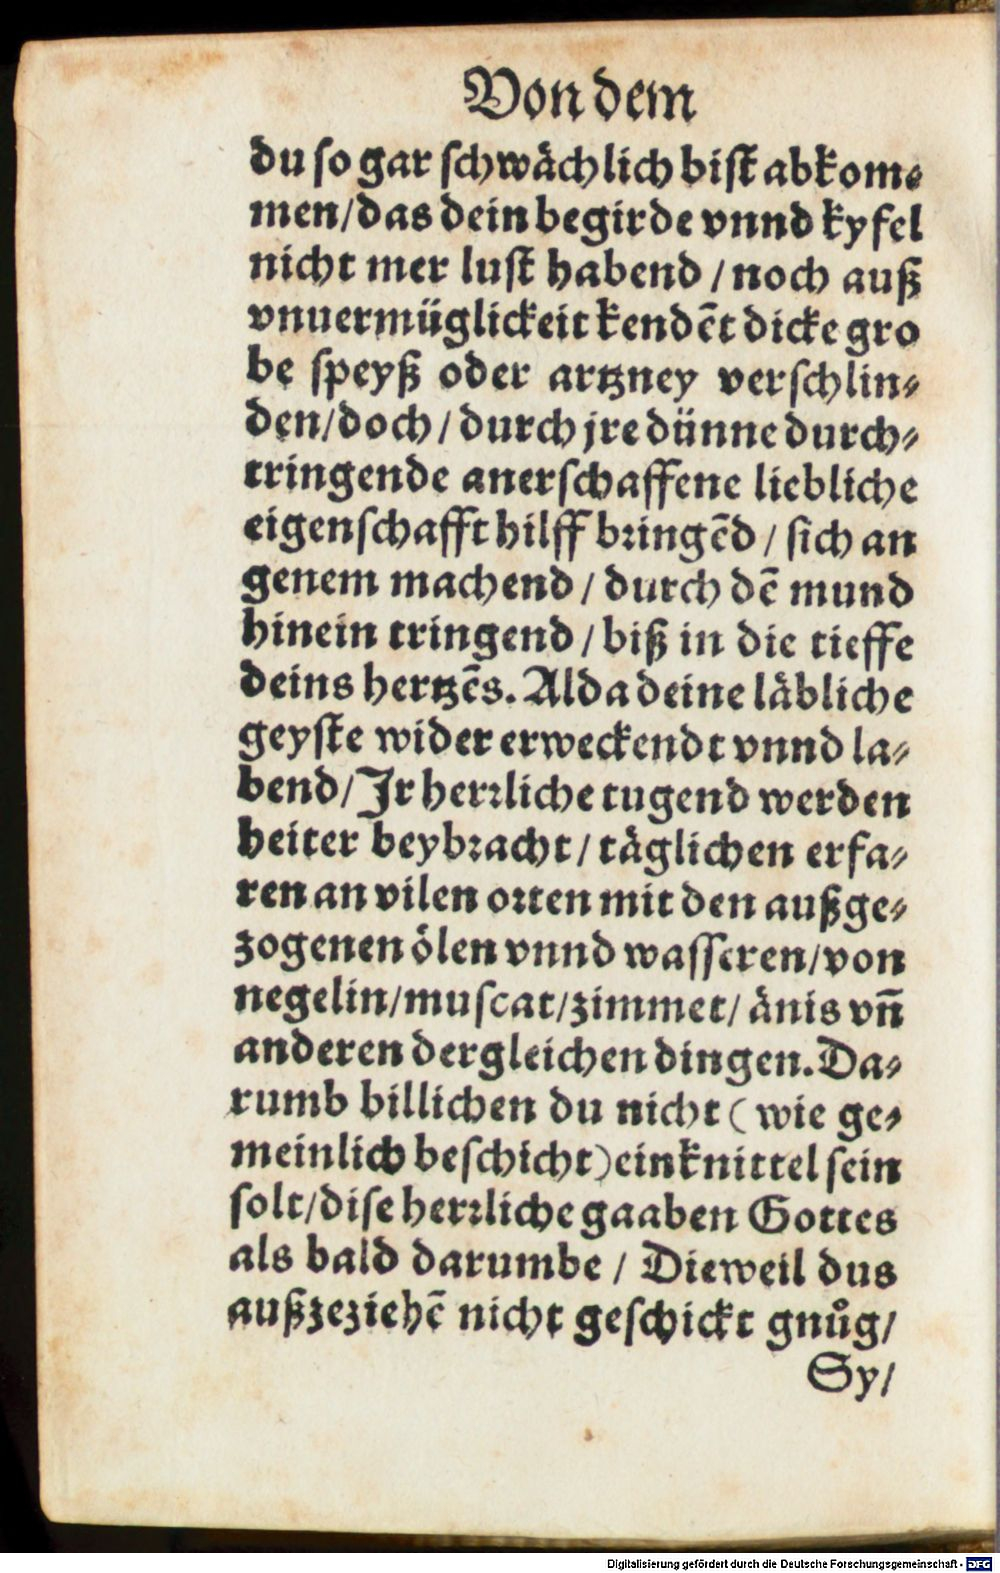 Von dem
du so gar schwächlich bist abkom⸗
men/das dein begirde vnnd kyfel
nicht mer lust habend / noch auß
vnuermüglickeit kendēt dicke gro
be speyß oder artzney verschlin⸗
den/doch / durch jre dünne durch⸗
tringende anerschaffene liebliche
eigenschafft hilff bringēd / sich an
genem machend / durch dē mund
hinein tringend / biß in die tieffe
deins hertzēs. Alda deine läbliche
geyste wider erweckendt vnnd la⸗
bend/ Jr herrliche tugend werden
heiter beybracht / täglichen erfa⸗
ren an vilen orten mit den außge⸗
zogenen ölen vnnd wasseren/von
negelin/muscat/zimmet/ änis vn̄
anderen dergleichen dingen. Da⸗
rumb billichen du nicht ( wie ge⸗
meinlich beschicht) ein knittel sein
solt/dise herrliche gaaben Gottes
als bald darumbe / Dieweil dus
außzeziehē nicht geschickt gnůg/
Sy/
Digitalisierung gefördert durch die Deutsche Forschungsgemeinschaft - DFG